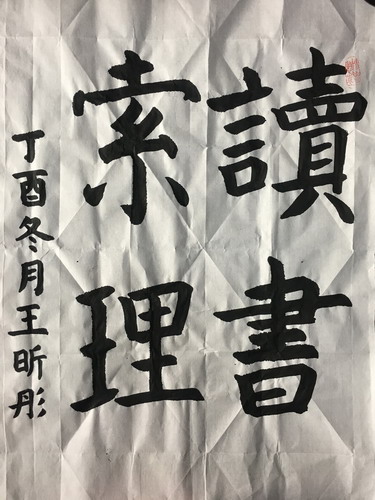 讀書
索理
丁酉冬月王昕彤